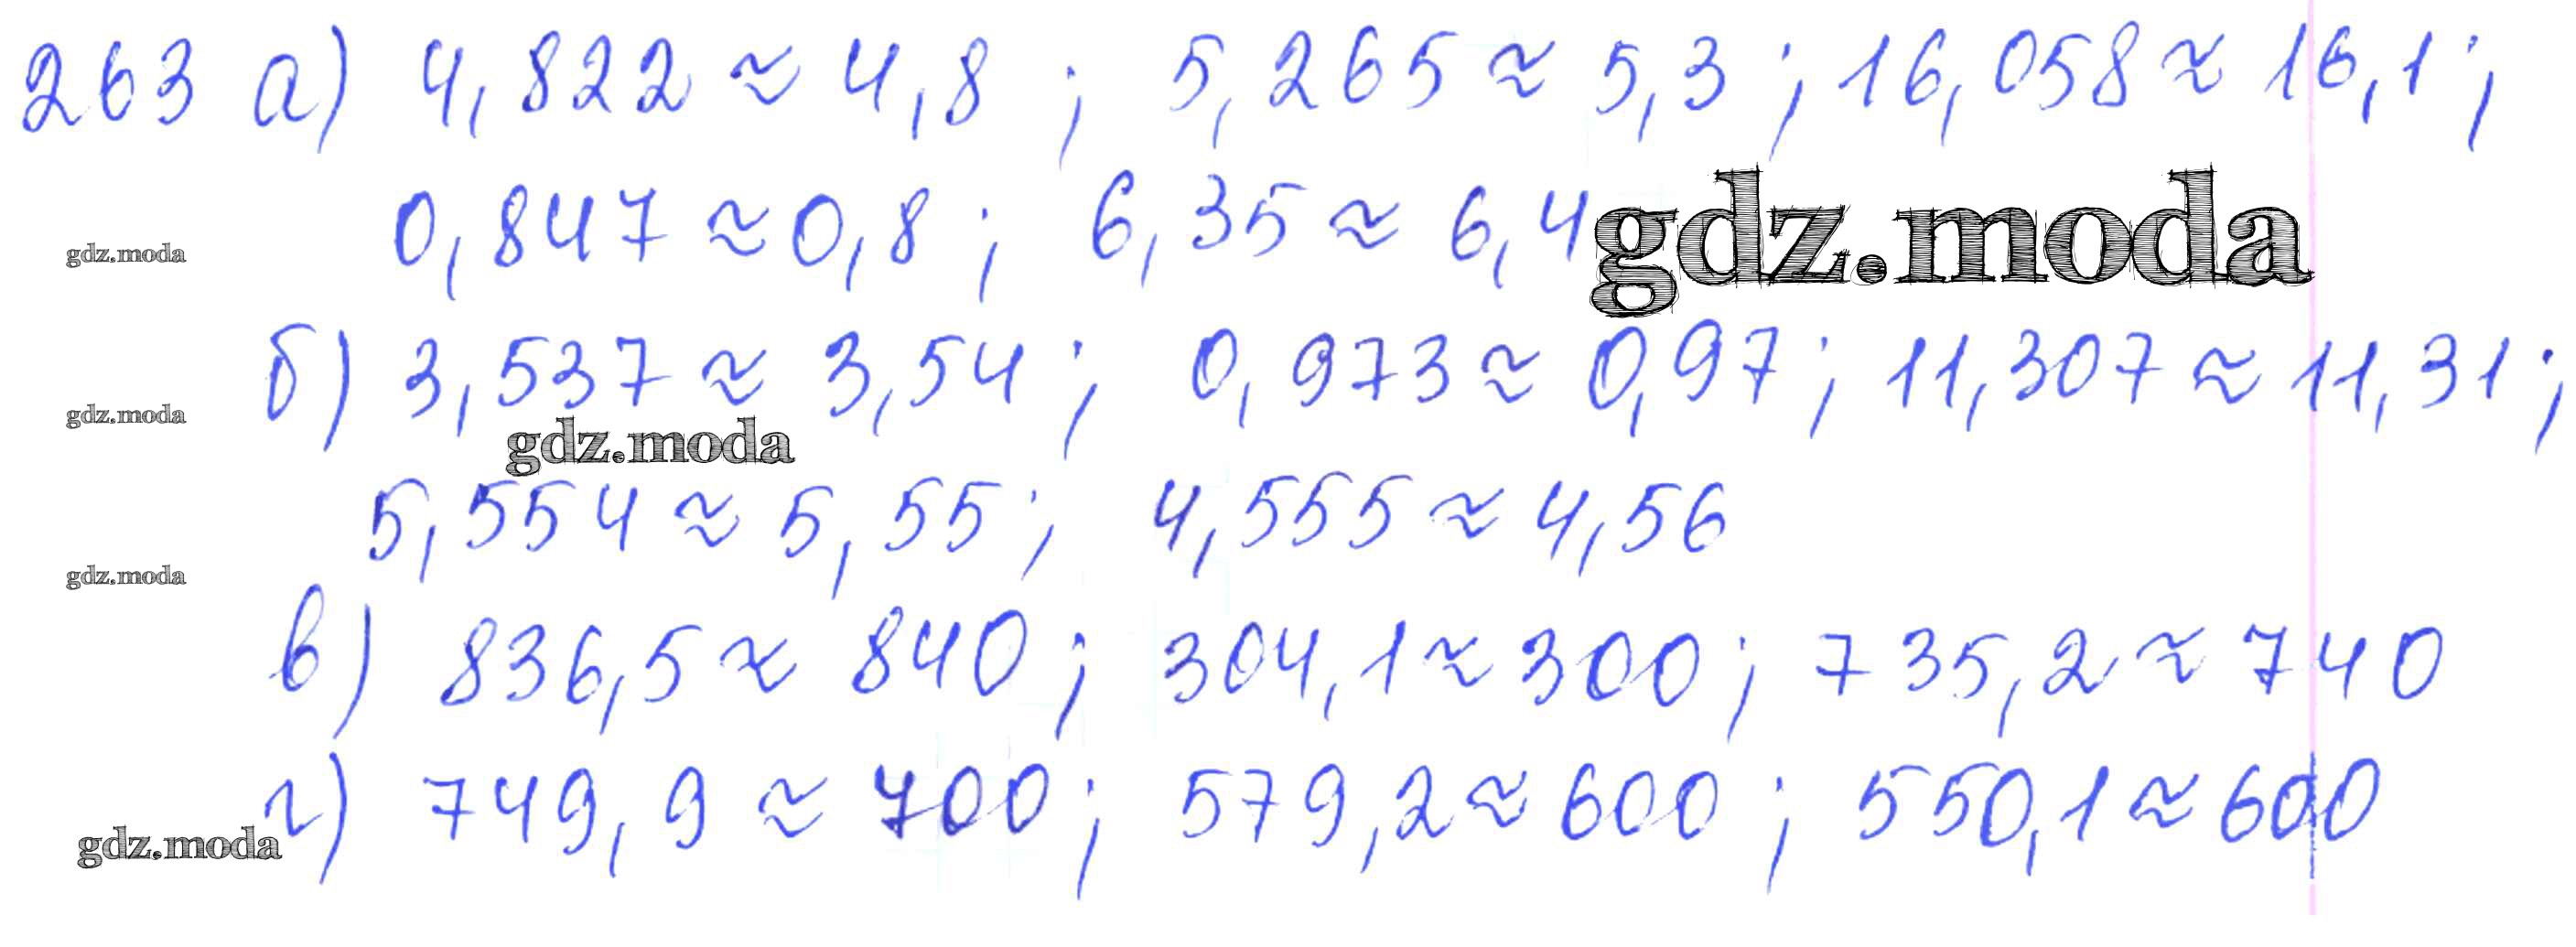 263 а) 4,822 ≈ 4,8 ; 5,265 ≈ 5,3 ; 16,058 ≈ 16,1 ;
0,847 ≈ 0,8 ; 6,35 ≈ 6,4 gdz.moda
gdz.moda
б) 3,537 ≈ 3,54 ; 0,973 ≈ 0,97 ; 11,307 ≈ 11,31 ;
gdz.moda gdz.moda
5,554 ≈ 5,55 ; 4,555 ≈ 4,56
gdz.moda
в) 836,5 ≈ 840 ; 304,1 ≈ 300 ; 735,2 ≈ 740
г) 749,9 ≈ 700 ; 579,2 ≈ 600 ; 550,1 ≈ 600
gdz.moda